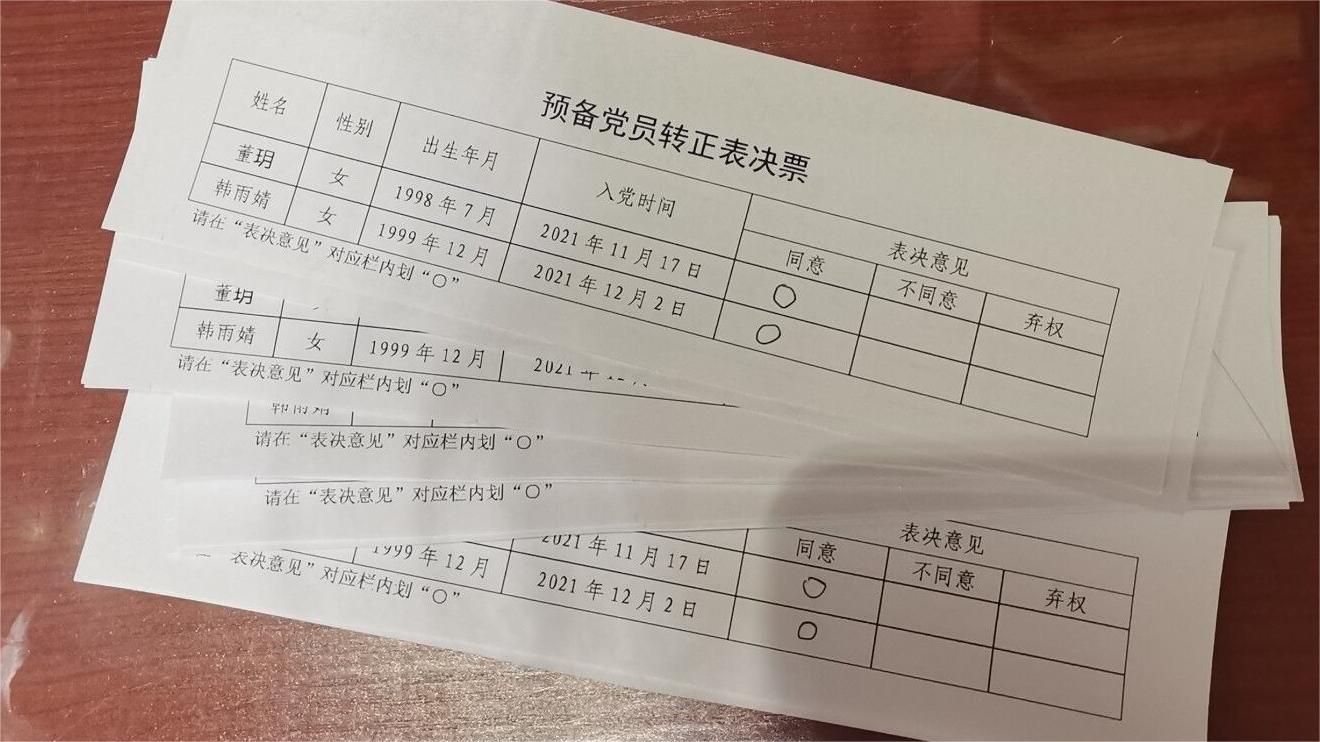 预备党员转正表决票
姓名 性别 出生年月 入党时间 表决意见
同意 不同意 弃权
董玥 女 1998年7月 2021年11月17日 〇
韩雨婧 女 1999年12月 2021年12月2日 〇
请在“表决意见”对应栏内划“〇”
董玥
韩雨婧 女 1999年12月 2021
请在“表决意见”对应栏内划“〇”
韩雨婧
请在“表决意见”对应栏内划“〇”
请在“表决意见”对应栏内划“〇”
表决意见
同意 不同意 弃权
2021年11月17日 〇
1999年12月 2021年12月2日 〇
表决意见”对应栏内划“〇”